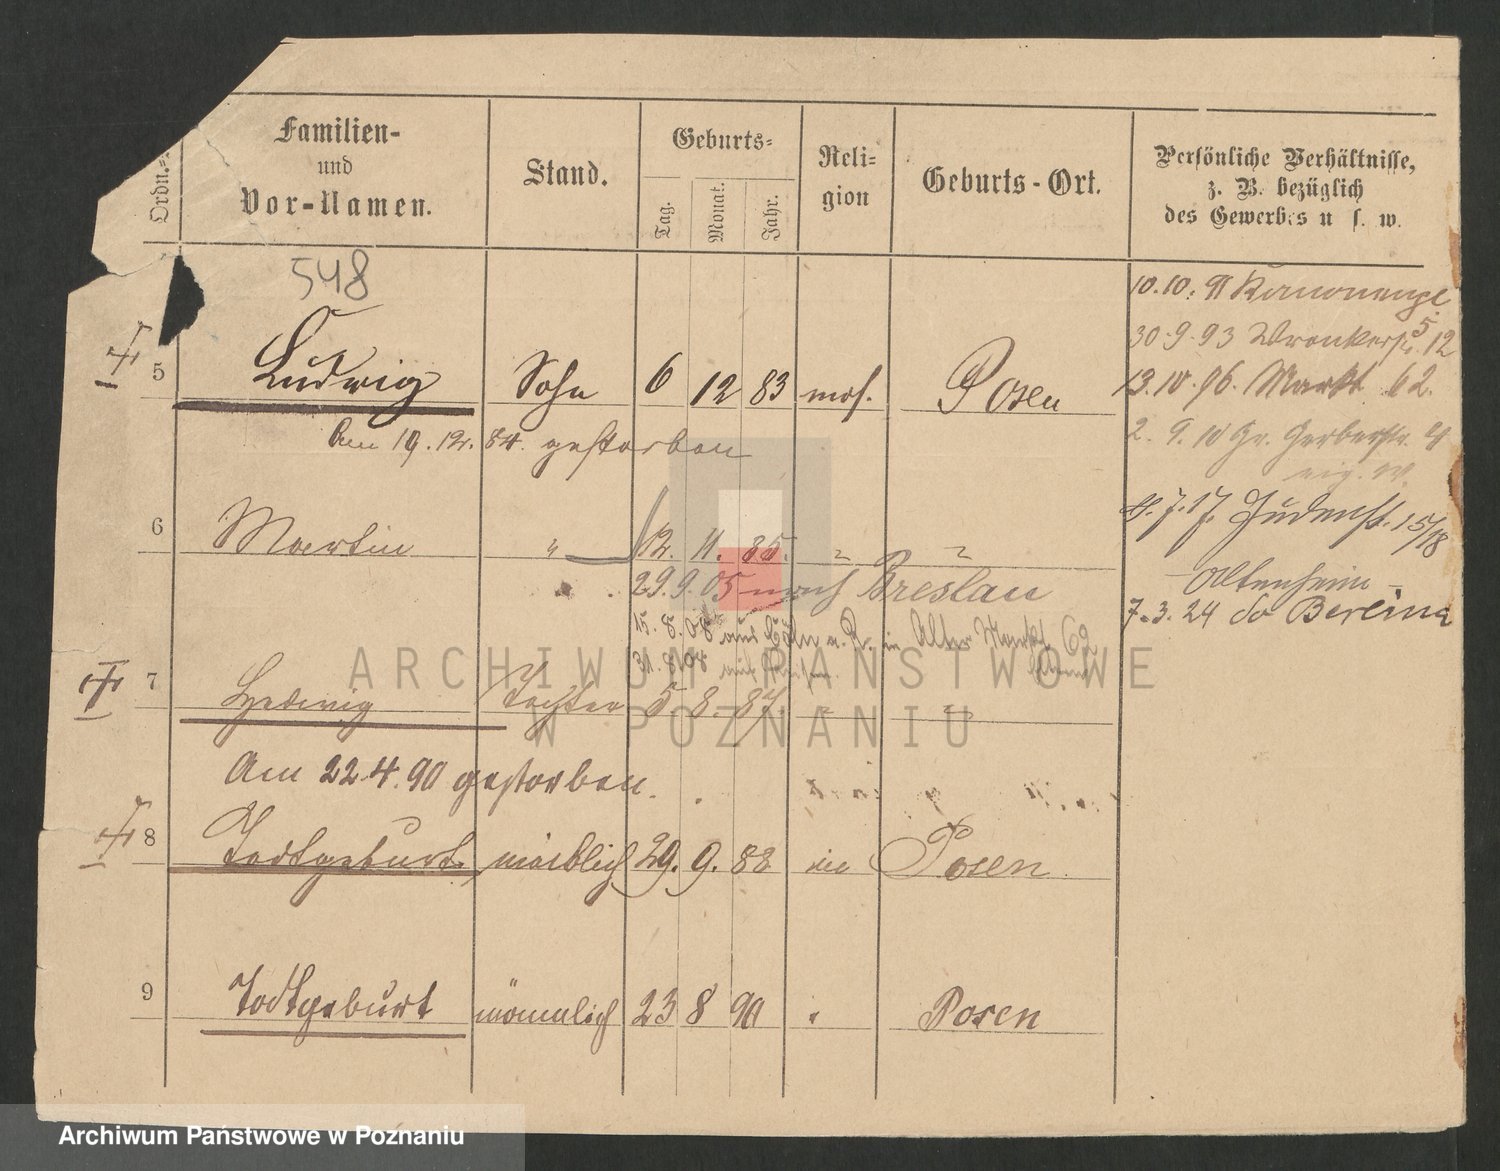 Ordn.=
Familien-
und
Vor-Namen.
Stand.
Geburts=
Tag.
Monat.
Jahr.
Reli=
gion
Geburts-Ort.
Persönliche Verhältnisse,
z. B. bezüglich
des Gewerbes u s. w.
548
5 Ludwig Sohn 6 12 83 mos. Posen
Am 19. 12. 84. gestorben
6 Martin " 12. 11. 85. " "
29.9.05 nach Breslau
15.8.08 aus Cöln a. R. in Alter Markt 62
31.8.08
7 Hedwig Tochter 5 8. 87. " "
Am 22.4.90 gestorben.
8 Todtgeburt weiblich 29. 9. 88 Posen
9 Todtgeburt männlich 23 8 90 " Posen
10.10.91 Kanonenpl.
30.9.93 Wronkerstr. 12
13.10.96. Markt 62.
2. 9. 10 Gr. Gerberstr. 4
7.17. Judenstr. 15/18
Altenheim
7.3.24 do Berlin
ARCHIWUM PAŃSTWOWE
W POZNANIU
Archiwum Państwowe w Poznaniu